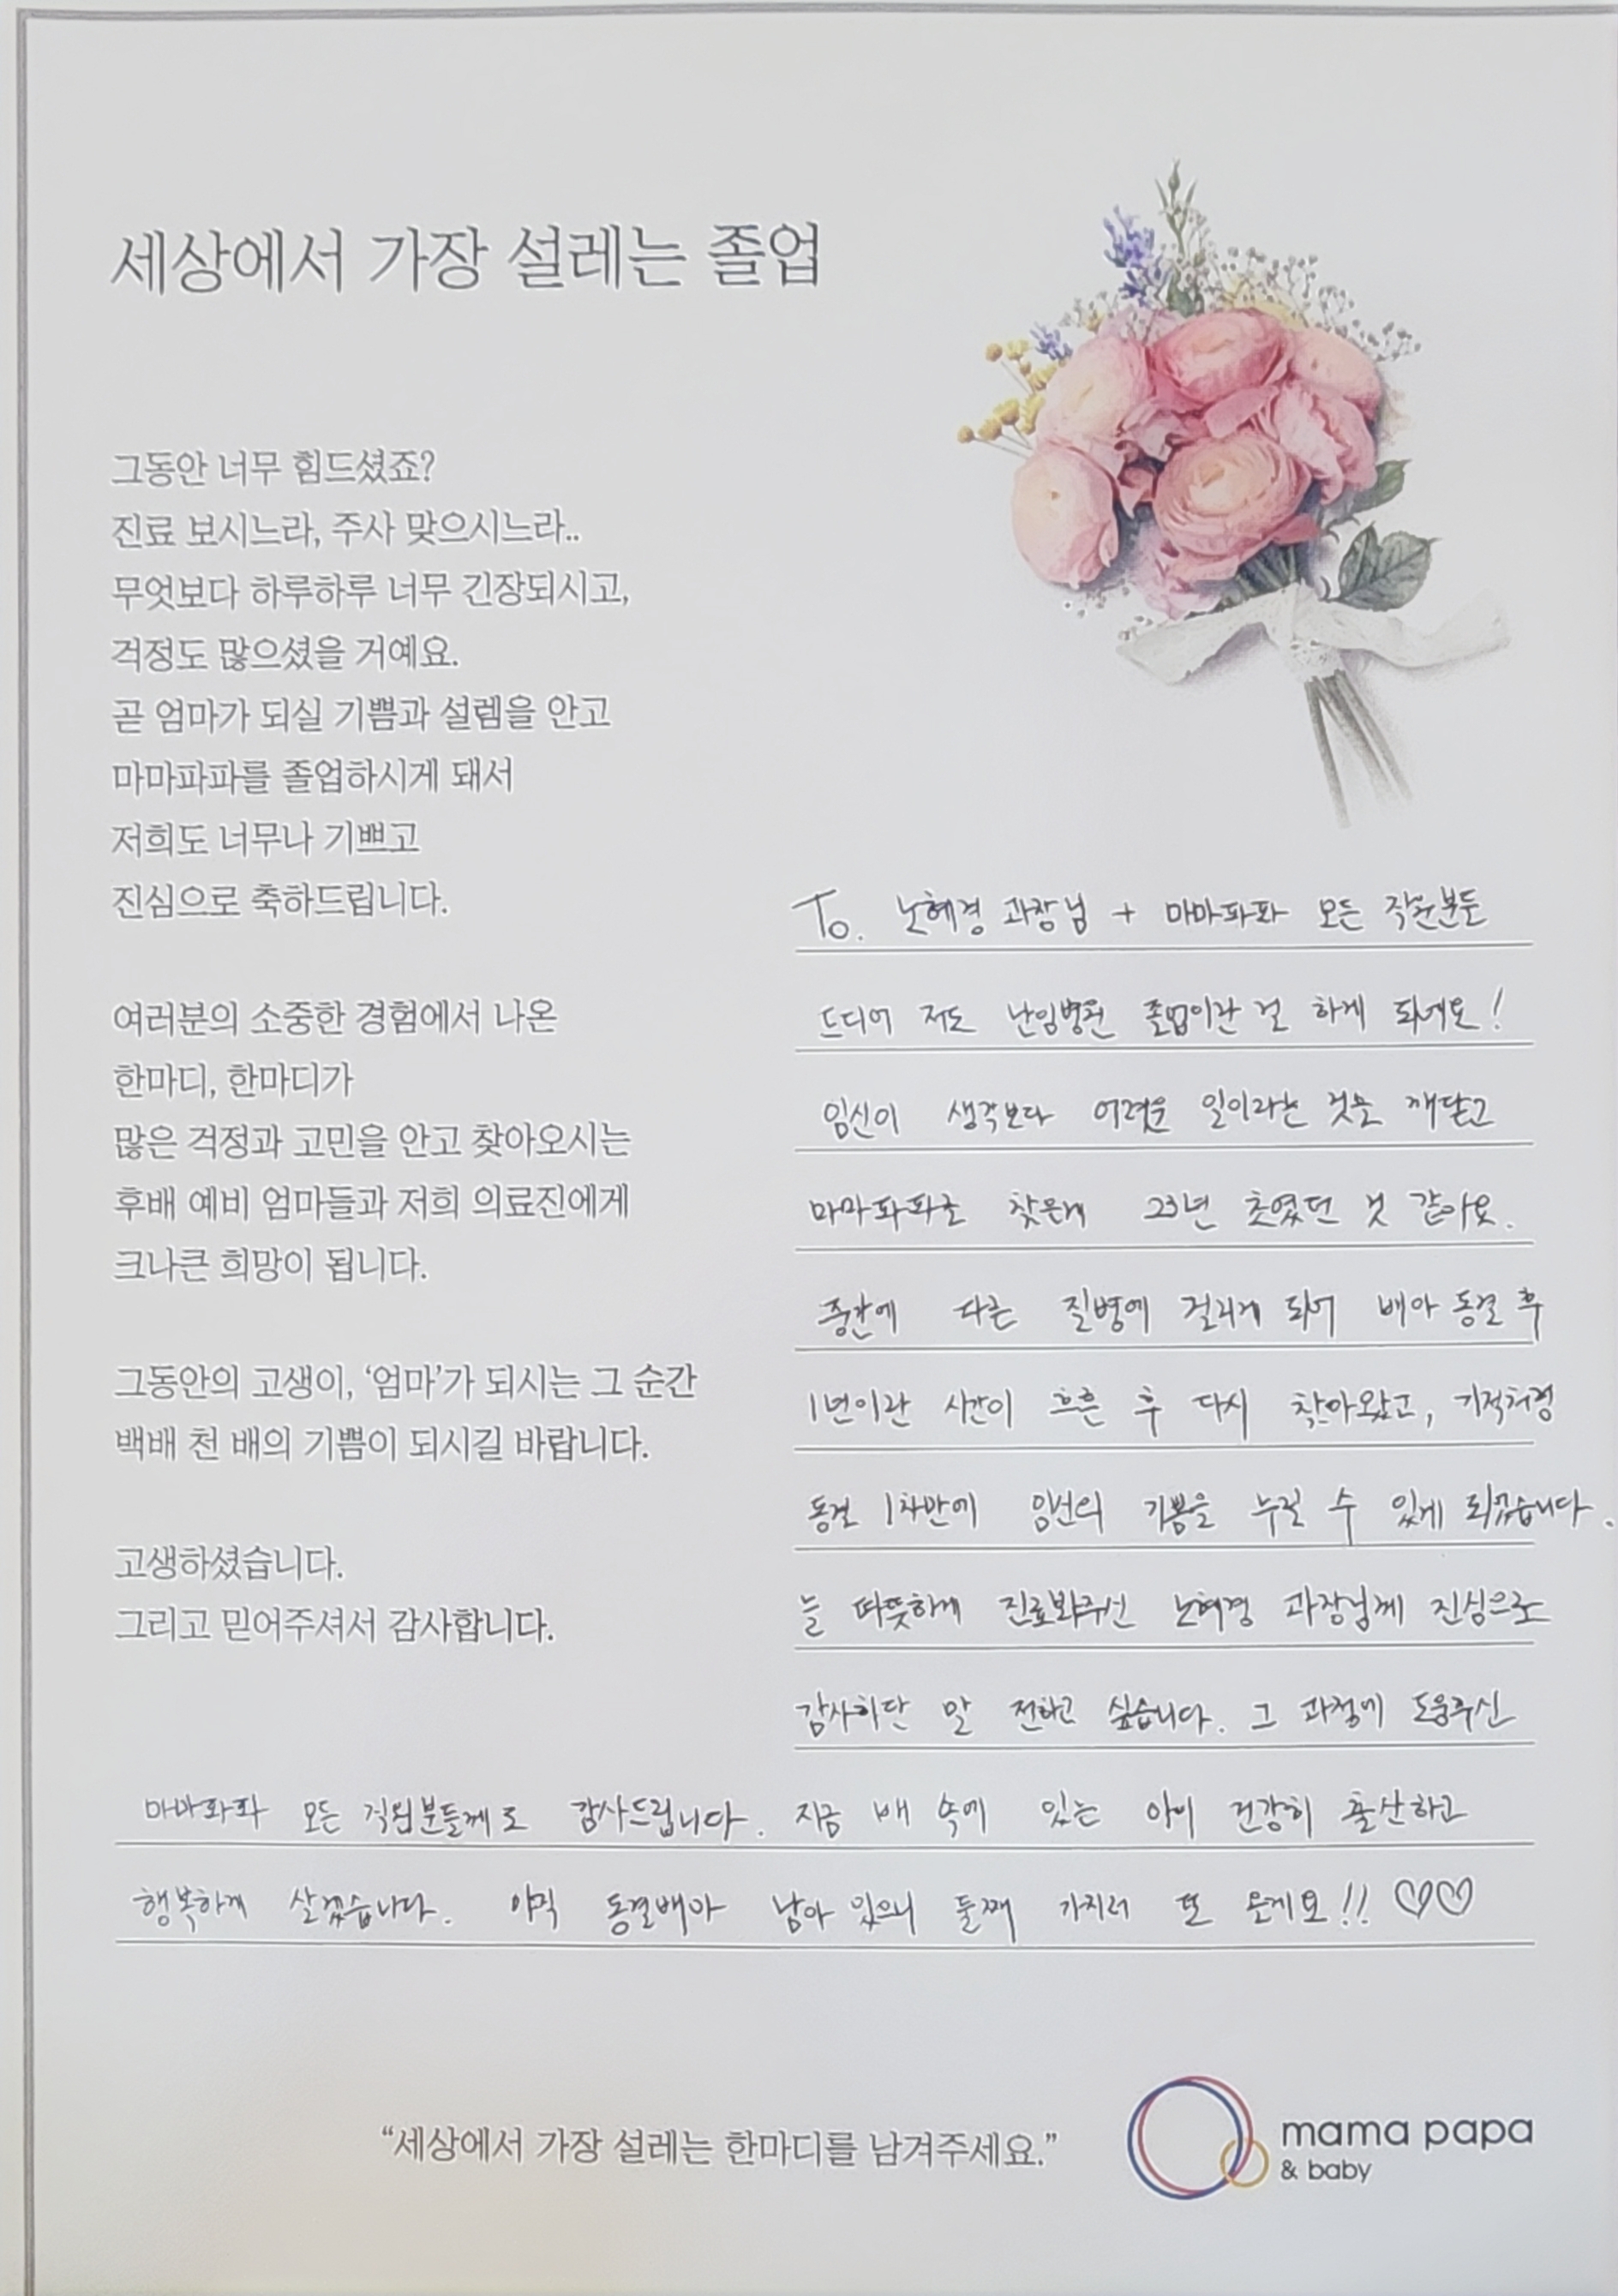 세상에서 가장 설레는 졸업
그동안 너무 힘드셨죠?
진료 보시느라, 주사 맞으시느라..
무엇보다 하루하루 너무 긴장되시고,
걱정도 많으셨을 거예요.
곧 엄마가 되실 기쁨과 설렘을 안고
마마파파를 졸업하시게 돼서
저희도 너무나 기쁘고
진심으로 축하드립니다.
여러분의 소중한 경험에서 나온
한마디, 한마디가
많은 걱정과 고민을 안고 찾아오시는
후배 예비 엄마들과 저희 의료진에게
크나큰 희망이 됩니다.
그동안의 고생이, ‘엄마’가 되시는 그 순간
백배 천 배의 기쁨이 되시길 바랍니다.
고생하셨습니다.
그리고 믿어주셔서 감사합니다.
To. 노혜경 과장님 + 마마파파 모든 직원분들
드디어 저도 난임병원 졸업이란 걸 하게 되네요!
임신이 생각보다 어려운 일이라는 것을 깨닫고
마마파파를 찾은게 23년 초였던 것 같아요.
중간에 다른 질병에 걸리게 되어 배아 동결 후
1년이란 시간이 흐른 후 다시 찾아왔고, 기적처럼
동결 1차만에 임신의 기쁨을 누릴 수 있게 되었습니다.
늘 따뜻하게 진료봐주신 노혜경 과장님께 진심으로
감사하단 말 전하고 싶습니다. 그 과정에 도움주신
마마파파 모든 직원분들께도 감사드립니다. 지금 배 속에 있는 아이 건강히 출산하고
행복하게 살겠습니다. 아직 동결배아 남아 있으니 둘째 가지러 또 올게요!! ♡♡
“세상에서 가장 설레는 한마디를 남겨주세요.”
mama papa
& baby